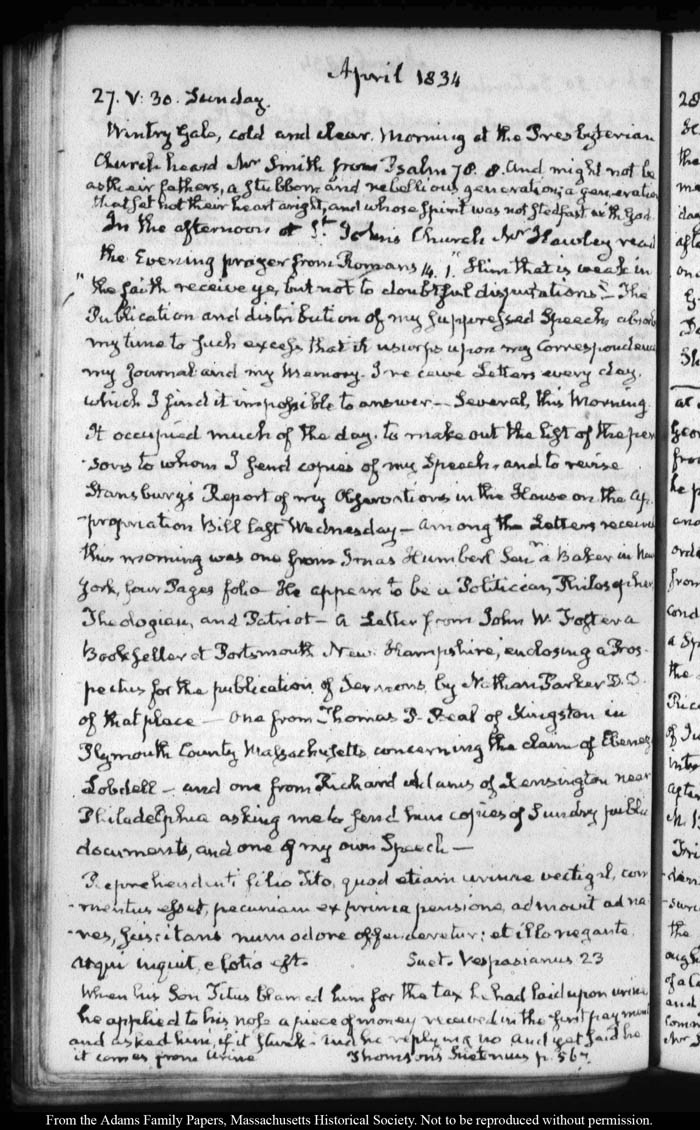 April 1834
27. V: 30. Sunday.
Wintry Gale, cold and clear. Morning at the Presbyterian
Church heard Mr Smith from Psalm 78. 8. And might not be
as their fathers, a stubborn and rebellious generation; a generation
that set not their heart aright, and whose spirit was not stedfast with God.
In the afternoon at St. John's Church Mr Hawley read
the Evening prayer from Romans 14. 1. "Him that is weak in
"the faith receive ye, but not to doubtful disputations"— The
Publication and distribution of my suppressed Speech, absorbs
my time to such excess that it usurps upon my Correspondence
my Journal and my Memory. I receive Letters every day,
which I find it impossible to answer— Several, this Morning.
It occupied much of the day, to make out the list of the per
-sons to whom I send copies of my Speech, and to revise
Stansbury's Report of my Observations in the House on the Ap-
-propriation Bill last Wednesday— Among the Letters received
this morning was one from Jonas Humbert Senr. a Baker in New
York, four Pages folio— He appears to be a Politician, Philosopher,
Theologian, and Patriot— A Letter from John W. Foster a
Bookseller at Portsmouth New Hampshire, enclosing a Pros-
pectus for the publication of Sermons by Nathan Parker D.D.
of that place— One from Thomas P. Beal of Kingston in
Plymouth County Massachusetts concerning the claim of Ebenezer
Lobdell— and one from Richard Adams of Kensington near
Philadelphia asking me to send him copies of Sundry public
documents, and one of my own Speech—
Reprehendenti filio Tito, quod etiam urinae vectigal, com
-mentus esset, pecuniam ex prima pensione, admovit ad na-
-res, sciscitans num odore offenderetur; et illo negante.
atqui inquit, e lotio est. Suet. Vespasianus 23
When his Son Titus blamed him for the tax he had laid upon urine,
he applied to his nose a piece of money received in the first payment
and asked him, if it stunk— and he replying no And yet said he
it comes from Urine Thomson's Suetonius p. 567
28
From the Adams Family Papers, Massachusetts Historical Society. Not to be reproduced without permission.